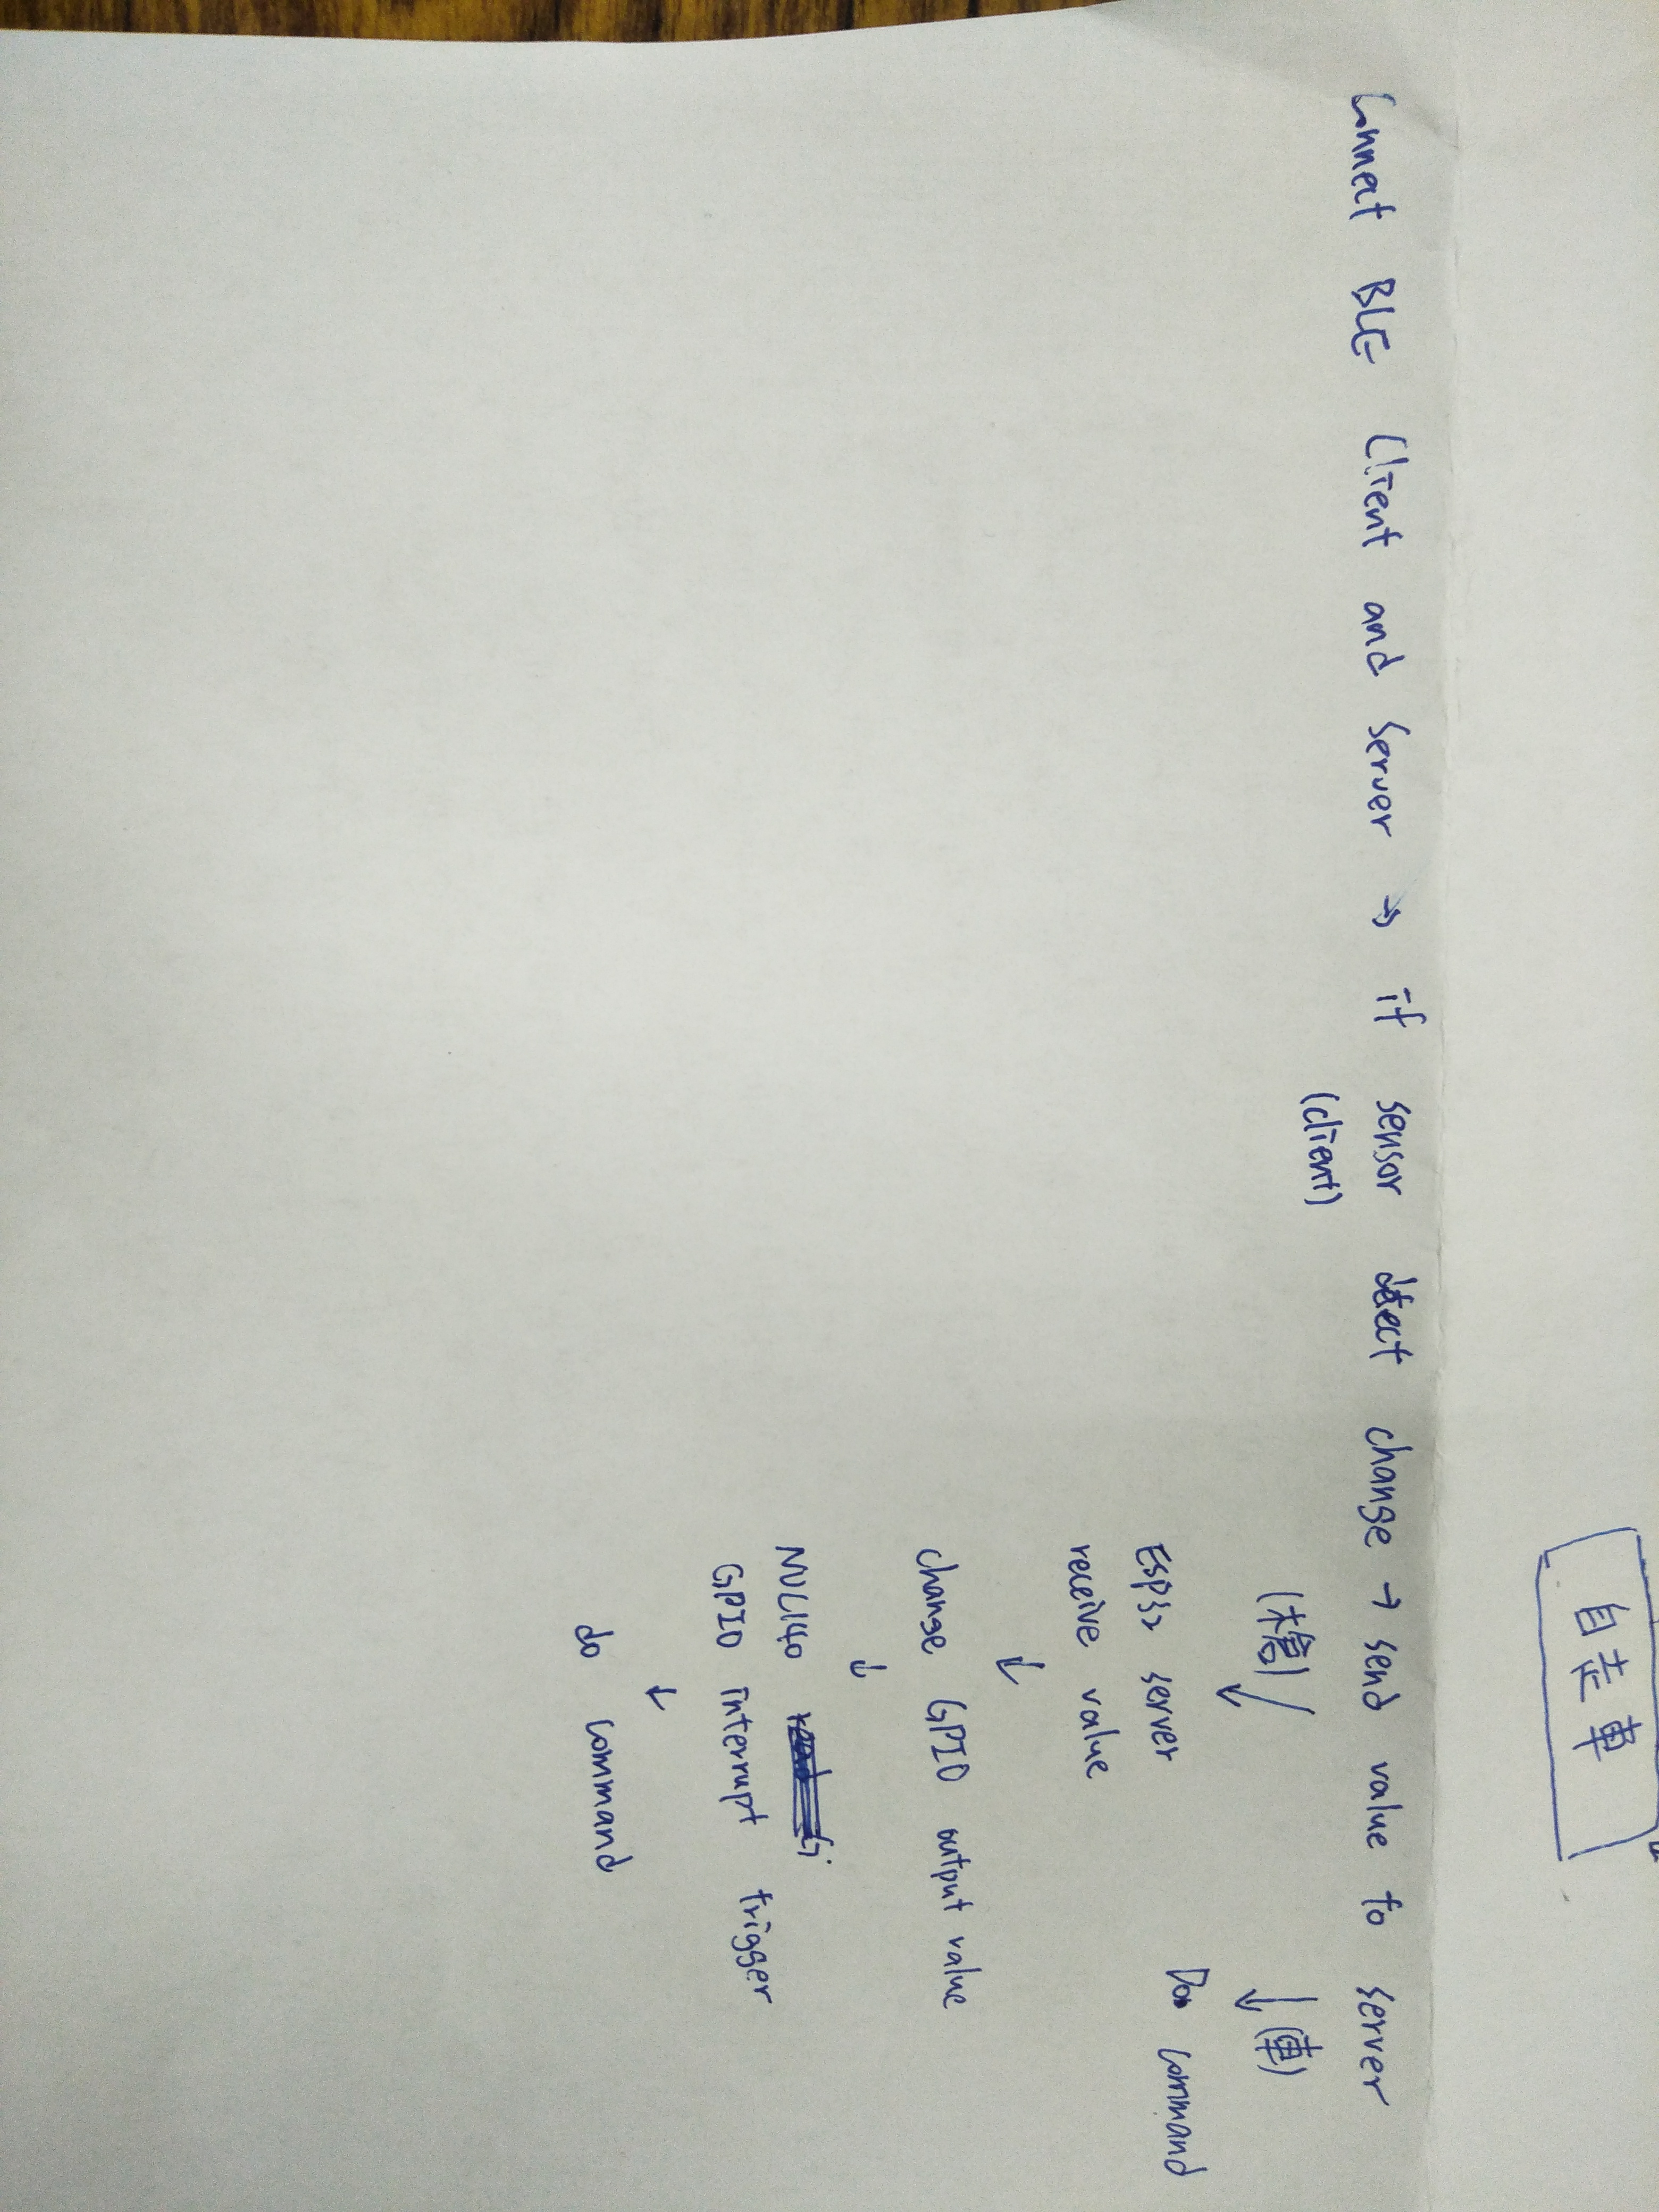 自走車
Connect BLE Client and Server → if sensor detect change → send value to server
(client)
(車)
ESP32 server
Do command
receive value
↓
change GPIO output value
↓
NUC140
GPIO interrupt trigger
↓
do command